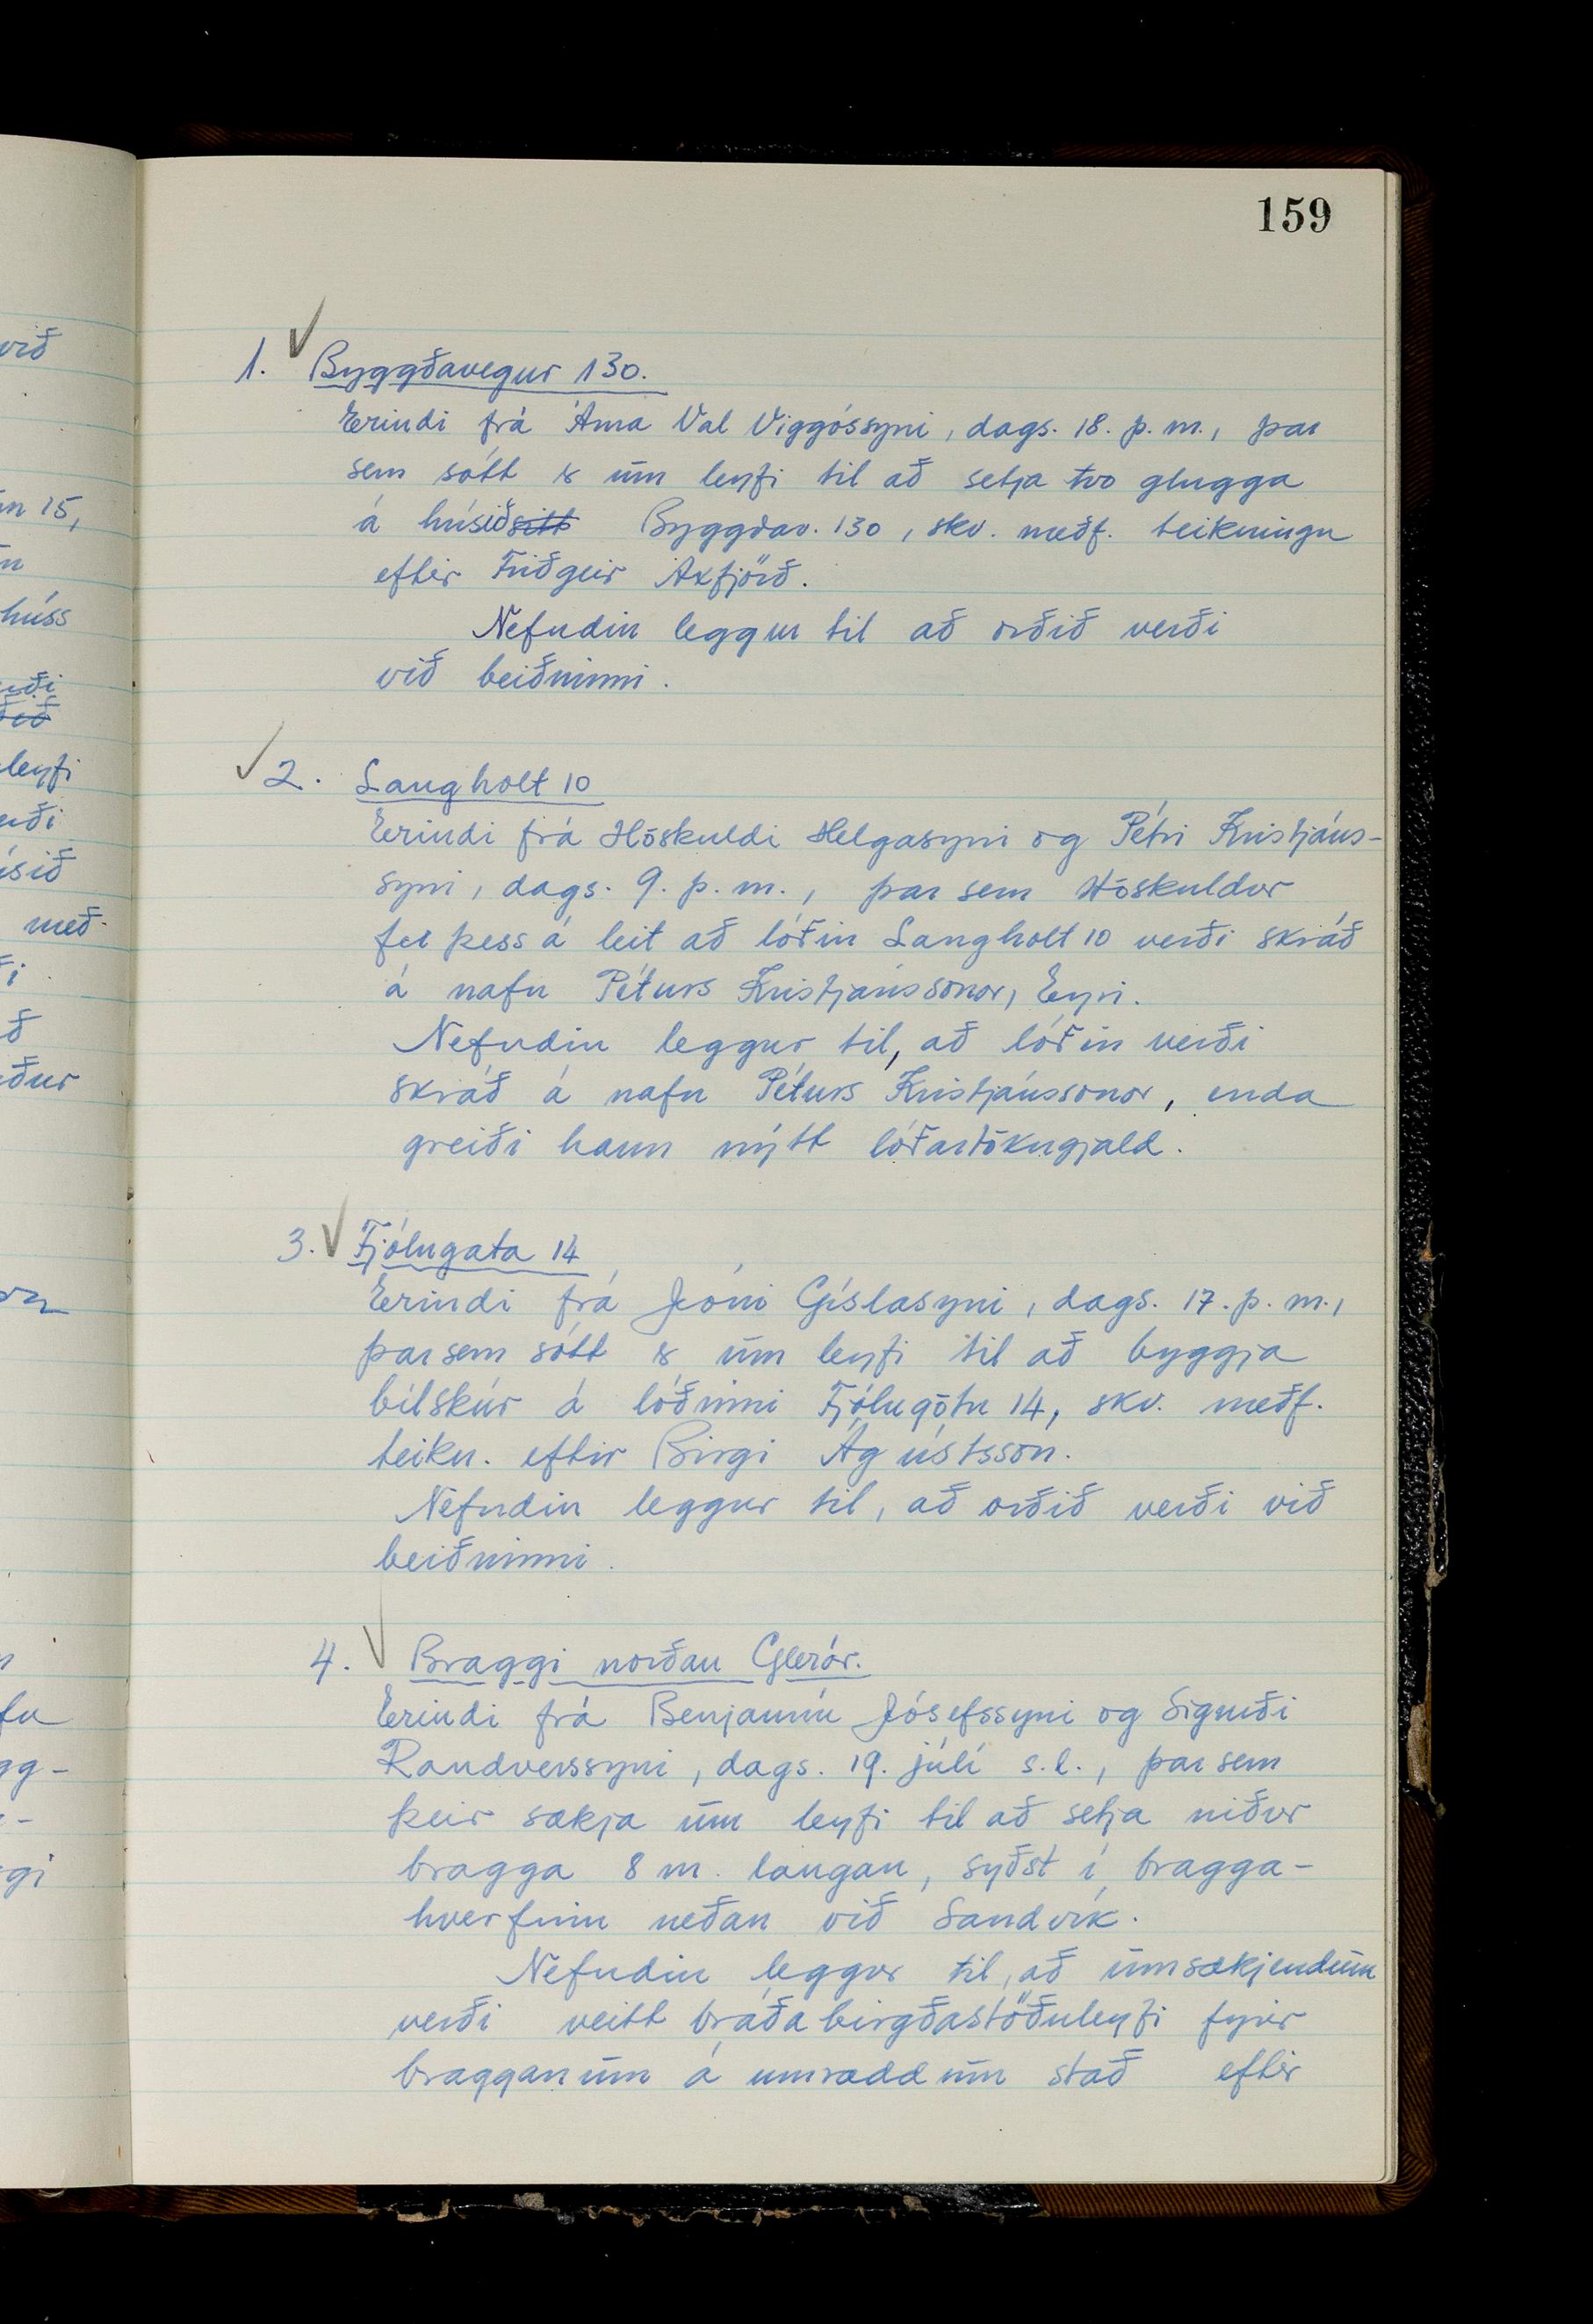 159
við
1. Byggðavegur 130.
Erindi frá Árna Val Viggóssyni, dags. 18. þ. m., þar
sem sótt er um leyfi til að setja tvo glugga
15,
á húsið sitt Byggðav. 130, skv. meðf. teikningu
eftir Friðgeir Axfjörð.
húss
Nefndin leggur til að orðið verði
við beiðninni.
leyfi
2. Langholt 10
Erindi frá Höskuldi Helgasyni og Pétri Kristjáns-
syni, dags. 9. þ. m., þar sem Höskuldur
með-
fer þess á leit að lóðin Langholt 10 verði skráð
á nafn Péturs Kristjánssonar, Eyri.
Nefndin leggur til, að lóðin verði
skráð á nafn Péturs Kristjánssonar, enda
greiði hann nýtt lóðartökugjald.
3. Fjólugata 14
Erindi frá Jóni Gíslasyni, dags. 17. þ. m.,
þar sem sótt er um leyfi til að byggja
bílskúr á lóðinni Fjólugötu 14, skv. meðf.
teikn. eftir Birgi Ágústsson.
Nefndin leggur til, að orðið verði við
beiðninni.
4. Braggi norðan Glerár.
Erindi frá Benjamín Jósefssyni og Sigurði
Randverssyni, dags. 19. júlí s.l., þar sem
þeir sækja um leyfi til að setja niður
bragga 8 m. langan, syðst í bragga-
hverfinu neðan við Sandvík.
Nefndin leggur til, að umsækjendum
verði veitt bráðabirgðastöðuleyfi fyrir
bragganum á umræddum stað eftir